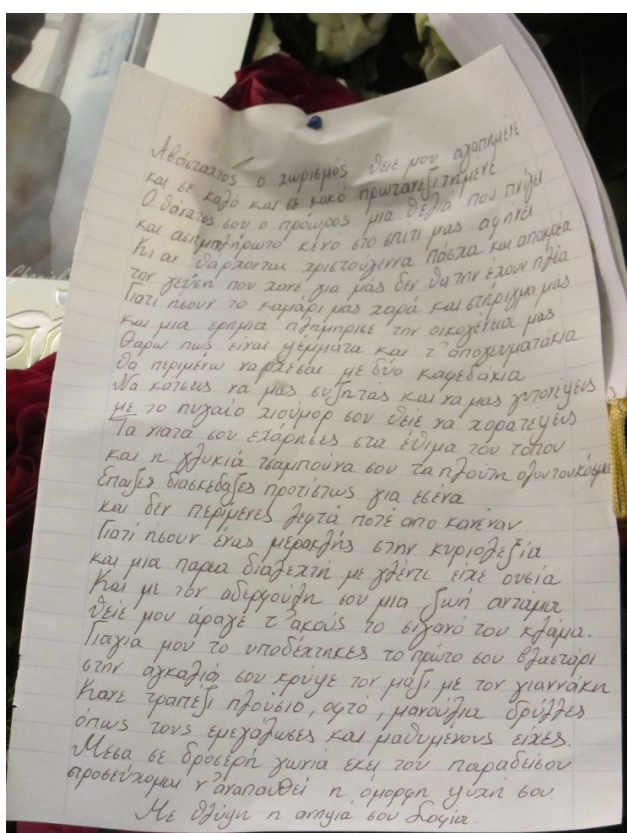 Αβάσταχτος ο χωρισμός θείε μου αγαπημένε
και σε καλό και σε κακό πρωτανεζιτημένε
Ο θάνατος σου ο πρόωρος μια θελιά που πνίγει
και ασημπλήρωτο κενό στο σπίτι μας αφήνει
Κι αν θάρχονται χριστούγεννα πάσχα και αποκρέα
την γεύση που χανε για μάς δεν θα την έχουν πλέα
Γιατί ήσουν το καμάρι μας χαρά και στήριγμα μας
και μια ερημιά πλημμηρισε την οικογένεια μας
Θαρώ πως είναι ψέμματα και τ' απογευματάκια
θα περιμένω νάρχεσαι με δύο καφεδάκια
Να κάτσεις να μας συζητάς και να μας γυτονέψεις
με το πηγαίο χιούμορ σου θείε να χορατέψεις
Τα νιάτα σου εχάρησες στα έθιμα του τόπου
και η γλυκιά τσαμπούνα σου τα πλούτη
Έπαιξες διασκέδαξες προτίστως για εσένα
και δεν περίμενες λεφτά ποτέ απο κανέναν
Γιατί ήσουν ένας μερακλής στην κυριολεξία
και μια παρέα διαλεχτή με γλέντι είχε ουσία
Και με τον αδερφούλη σου μια ζωή αντάμα
θείε μου άραγε τ' ακούς το σιγανό του κλάμα.
Γιαγιά μου το υποδέχτηκες το πρώτο σου βλαστάρι
στην αγκαλιά σου κρύψε τον μάζι με τον γιαννάκη
Κανε τραπέζι πλούσιο, οφτό, μανούλια δρύλλες
όπως τους εμεγάλωσες και μαθημένους είχες.
Μέσα σε δροσερή γωνιά εκεί του παραδείσου
προσεύχομαι ν' αναπαυθεί η όμορφη ψύχη σου.
Με θλίψη η ανηψιά σου Σοφία.